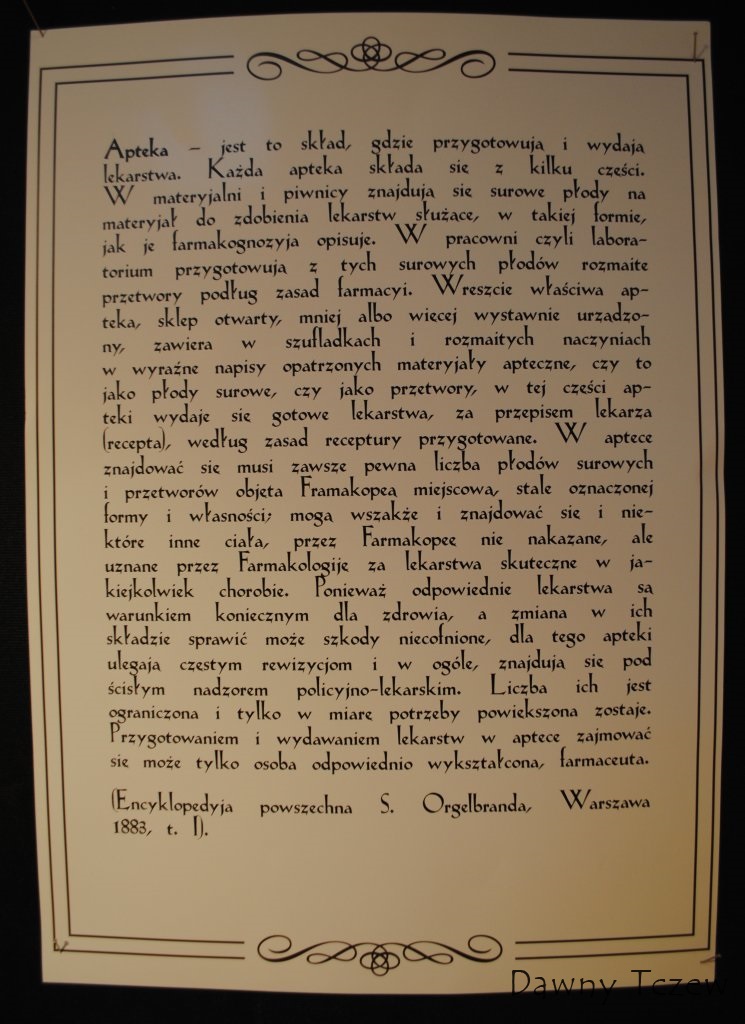 Apteka – jest to skład, gdzie przygotowują i wydają
lekarstwa. Każda apteka składa się z kilku części.
W materyjalni i piwnicy znajdują się surowe płody na
materyjał do zdobienia lekarstw służące, w takiej formie,
jak je farmakognozyja opisuje. W pracowni czyli labora-
torium przygotowują z tych surowych płodów rozmaite
przetwory podług zasad farmacyi. Wreszcie właściwa ap-
teka, sklep otwarty, mniej albo więcej wystawnie urządzo-
ny, zawiera w szufladkach i rozmaitych naczyniach
w wyraźne napisy opatrzonych materyjały apteczne, czy to
jako płody surowe, czy jako przetwory, w tej części ap-
teki wydaje się gotowe lekarstwa, za przepisem lekarza
(recepta), według zasad receptury przygotowane. W aptece
znajdować się musi zawsze pewna liczba płodów surowych
i przetworów objęta Framakopeą miejscową, stale oznaczonej
formy i własności; mogą wszakże i znajdować się i nie-
które inne ciała, przez Farmakopeę nie nakazane, ale
uznane przez Farmakologiję za lekarstwa skuteczne w ja-
kiejkolwiek chorobie. Ponieważ odpowiednie lekarstwa są
warunkiem koniecznym dla zdrowia, a zmiana w ich
składzie sprawić może szkody niecofnione, dla tego apteki
ulegają częstym rewizycjom i w ogóle, znajdują się pod
ścisłym nadzorem policyjno-lekarskim. Liczba ich jest
ograniczona i tylko w miarę potrzeby powiększona zostaje.
Przygotowaniem i wydawaniem lekarstw w aptece zajmować
się może tylko osoba odpowiednio wykształcona, farmaceuta.
(Encyklopedyja powszechna S. Orgelbranda, Warszawa
1883, t. I).
Dawny Tczew